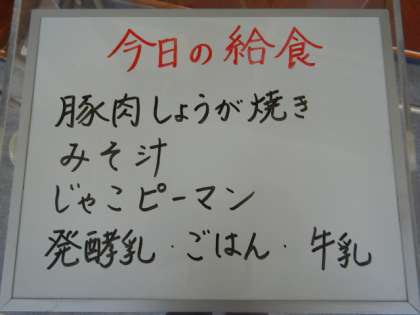 今日の給食
豚肉しょうが焼き
みそ汁
じゃこピーマン
発酵乳・ごはん・牛乳